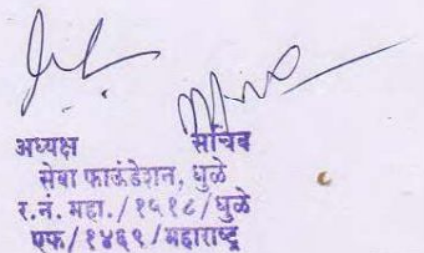 अध्यक्ष सचिव
सेवा फाऊंडेशन, धुळे
र.नं. महा./१५१८/धुळे
एफ/१४६९/महाराष्ट्र